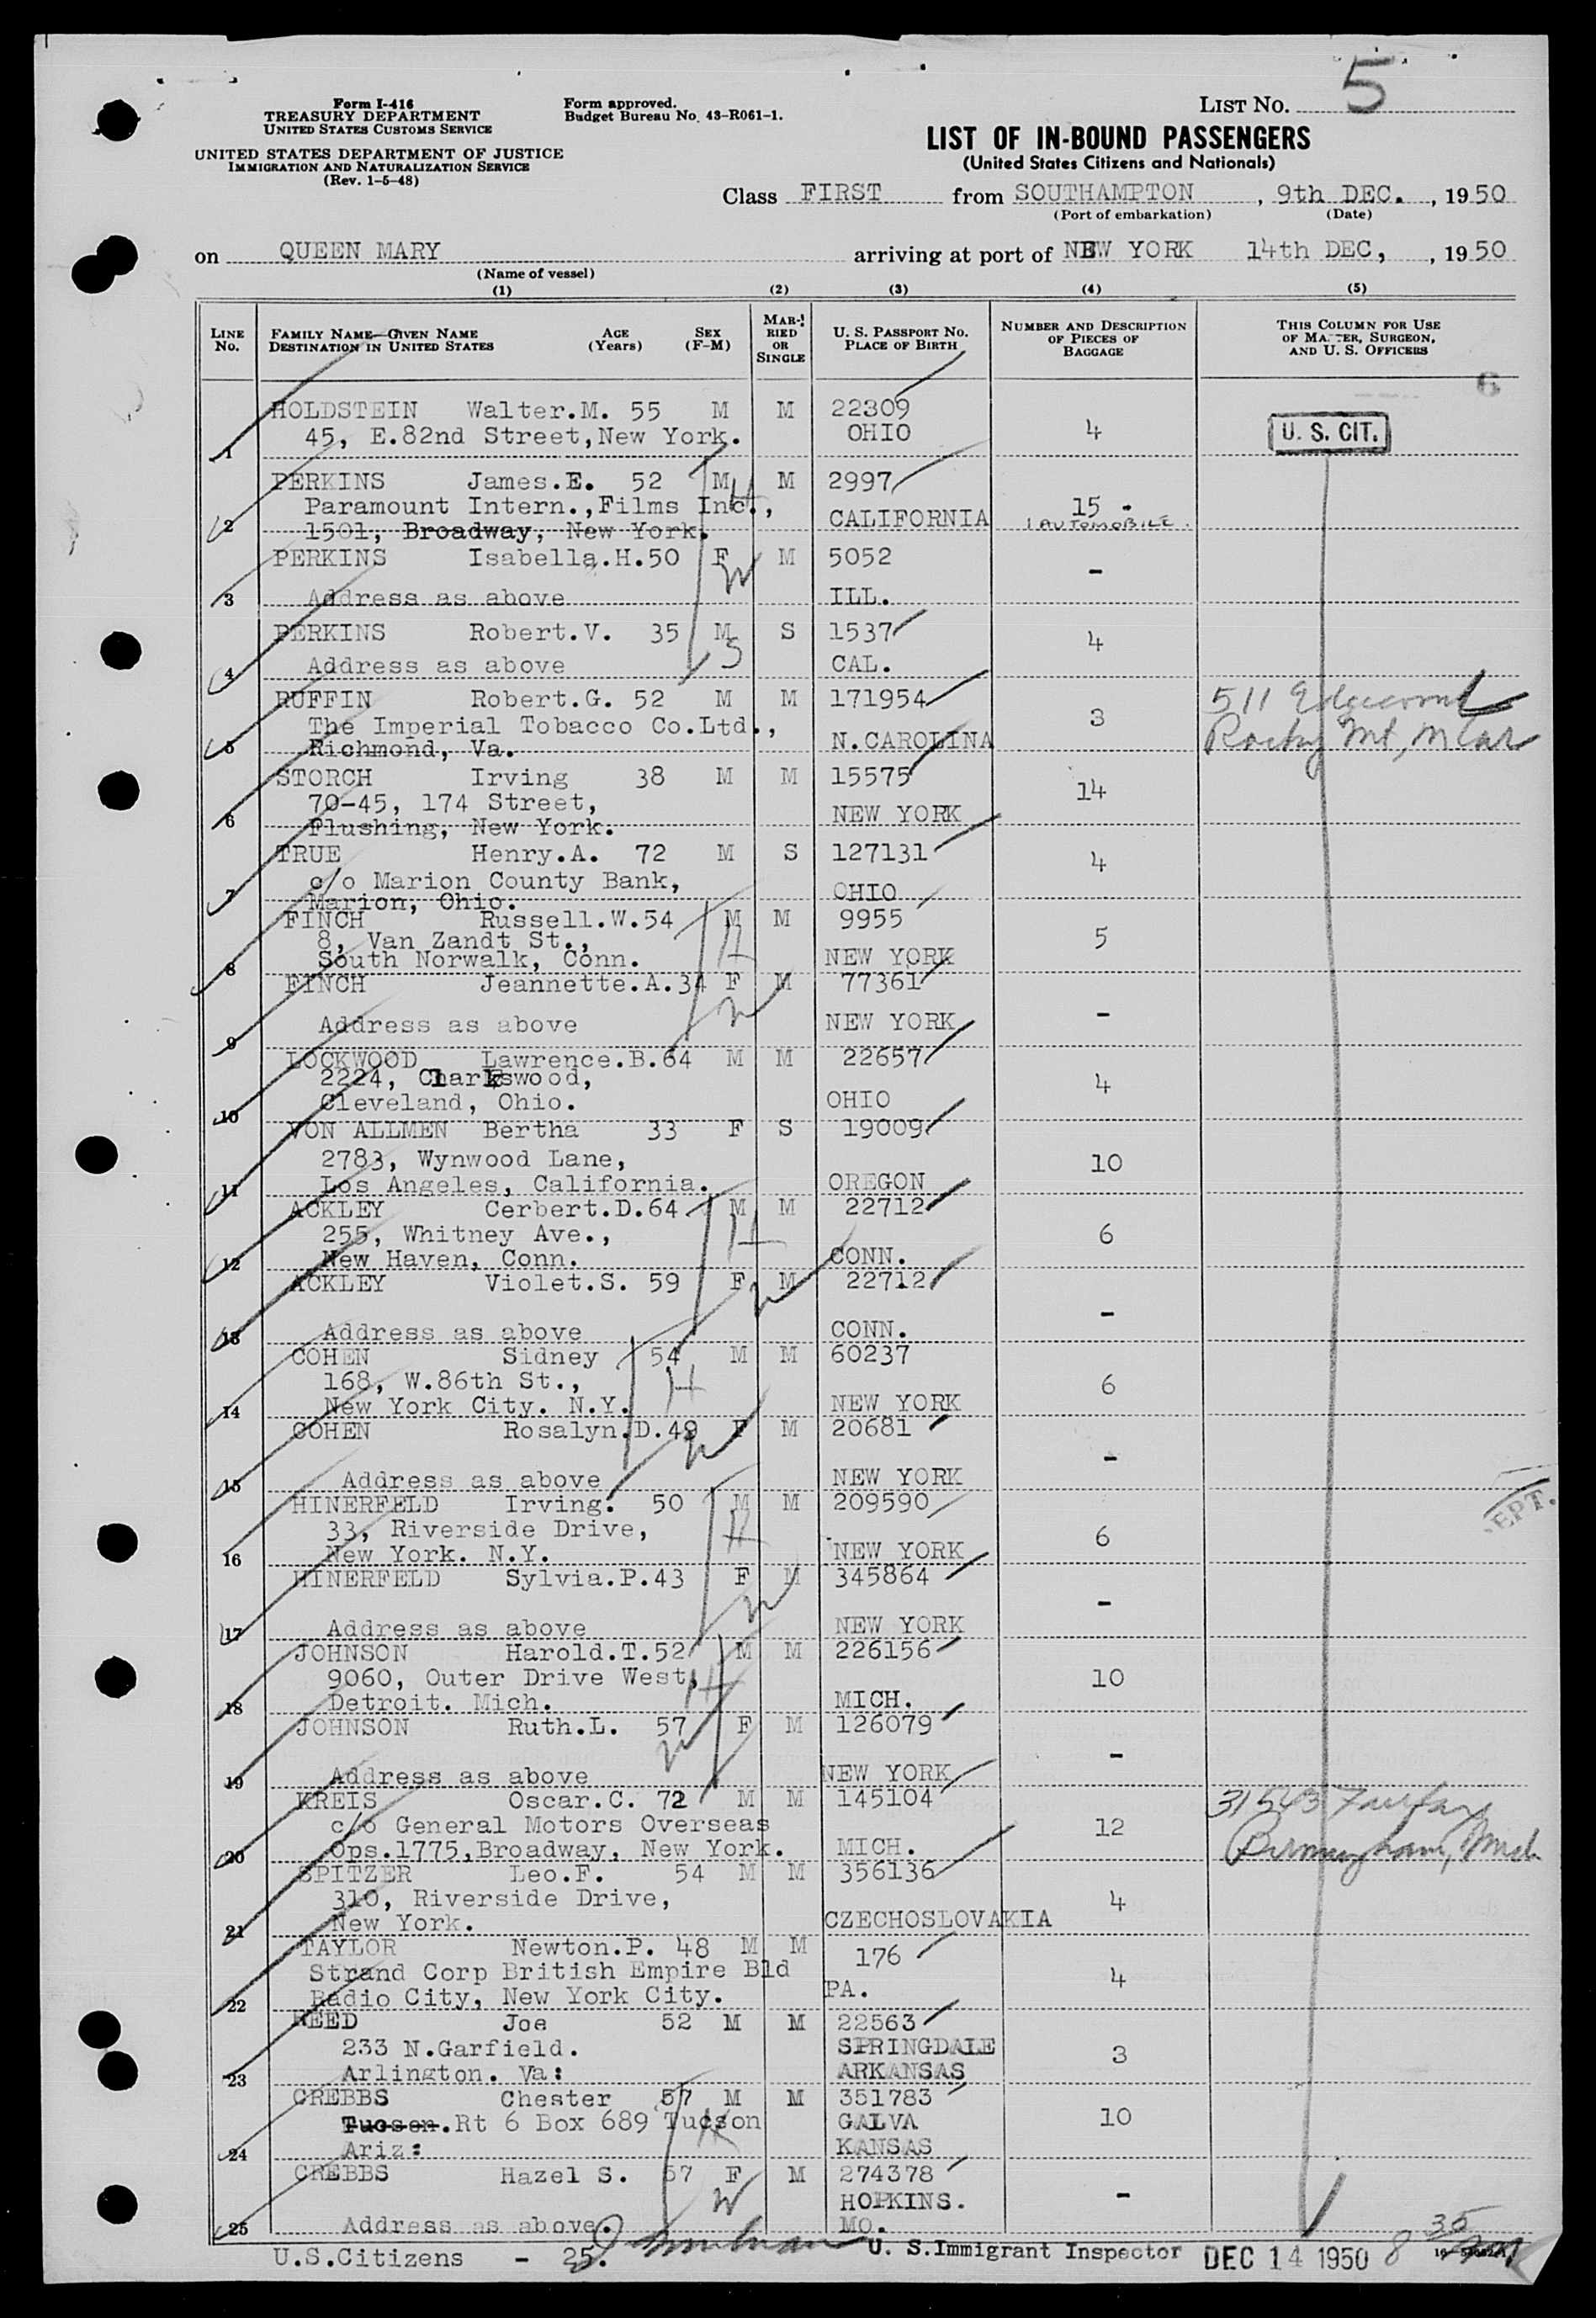 5
Form I-416
TREASURY DEPARTMENT
UNITED STATES CUSTOMS SERVICE
UNITED STATES DEPARTMENT OF JUSTICE
IMMIGRATION AND NATURALIZATION SERVICE
(Rev. 1-5-48)
Form approved.
Budget Bureau No. 43-R061-1.
LIST NO.
LIST OF IN-BOUND PASSENGERS
(United States Citizens and Nationals)
Class FIRST from SOUTHAMPTON , 9th DEC. , 19 50
(Port of embarkation) (Date)
on QUEEN MARY arriving at port of NEW YORK 14th DEC, , 19 50
(Name of vessel)
(1) (2) (3) (4) (5)
LINE No. FAMILY NAME—GIVEN NAME DESTINATION IN UNITED STATES AGE (Years) SEX (F-M) MARRIED OR SINGLE U. S. PASSPORT NO. PLACE OF BIRTH NUMBER AND DESCRIPTION OF PIECES OF BAGGAGE THIS COLUMN FOR USE OF MASTER, SURGEON, AND U. S. OFFICERS
6
HOLDSTEIN Walter.M. 55 M M 22309
1 45, E.82nd Street,New York. OHIO 4 U. S. CIT.
PERKINS James.E. 52 M M 2997
Paramount Intern.,Films Inc., CALIFORNIA 15
2 1501, Broadway, New York. 1 AUTOMOBILE.
PERKINS Isabella.H.50 F M 5052 -
3 Address as above ILL.
PERKINS Robert.V. 35 M S 1537 4
4 Address as above CAL.
RUFFIN Robert.G. 52 M M 171954 3 511
The Imperial Tobacco Co.Ltd., N.CAROLINA Rocky Mt, N Car
5 Richmond, Va.
STORCH Irving 38 M M 15575 14
70-45, 174 Street, NEW YORK
6 Flushing, New York.
TRUE Henry.A. 72 M S 127131 4
c/o Marion County Bank, OHIO
7 Marion, Ohio.
FINCH Russell.W.54 M M 9955 5
8, Van Zandt St.,
8 South Norwalk, Conn. NEW YORK
FINCH Jeannette.A.34 F M 77361 -
9 Address as above NEW YORK
LOCKWOOD Lawrence.B.64 M M 22657 4
2224, Clarkswood,
10 Cleveland, Ohio. OHIO
VON ALLMEN Bertha 33 F S 19009 10
2783, Wynwood Lane,
11 Los Angeles, California. OREGON
ACKLEY Cerbert.D.64 M M 22712 6
255, Whitney Ave.,
12 New Haven, Conn. CONN.
ACKLEY Violet.S. 59 F M 22712 -
13 Address as above CONN.
COHEN Sidney 54 M M 60237 6
168, W.86th St.,
14 New York City. N.Y. NEW YORK
COHEN Rosalyn.D.49 F M 20681 -
15 Address as above NEW YORK
HINERFELD Irving. 50 M M 209590 6
33, Riverside Drive,
16 New York. N.Y. NEW YORK
HINERFELD Sylvia.P.43 F M 345864 -
17 Address as above NEW YORK
JOHNSON Harold.T.52 M M 226156 10
9060, Outer Drive West,
18 Detroit. Mich. MICH.
JOHNSON Ruth.L. 57 F M 126079 -
19 Address as above NEW YORK
KREIS Oscar.C. 72 M M 145104 12 31543 Fairfax
c/o General Motors Overseas Birmingham, Mich
20 Ops.1775,Broadway, New York. MICH.
SPITZER Leo.F. 54 M M 356136 4
310, Riverside Drive,
21 New York. CZECHOSLOVAKIA
TAYLOR Newton.P. 48 M M 176 4
Strand Corp British Empire Bld
22 Radio City, New York City. PA.
REED Joe 52 M M 22563 3
233 N.Garfield. SPRINGDALE
23 Arlington. Va: ARKANSAS
CREBBS Chester 57 M M 351783 10
Tucson.Rt 6 Box 689 Tucson GALVA
24 Ariz: KANSAS
CREBBS Hazel S. 57 F M 274378 -
HOPKINS.
25 Address as above. MO.
U.S.Citizens - 25. U. S.Immigrant Inspector DEC 14 1950 8 35
EPT.